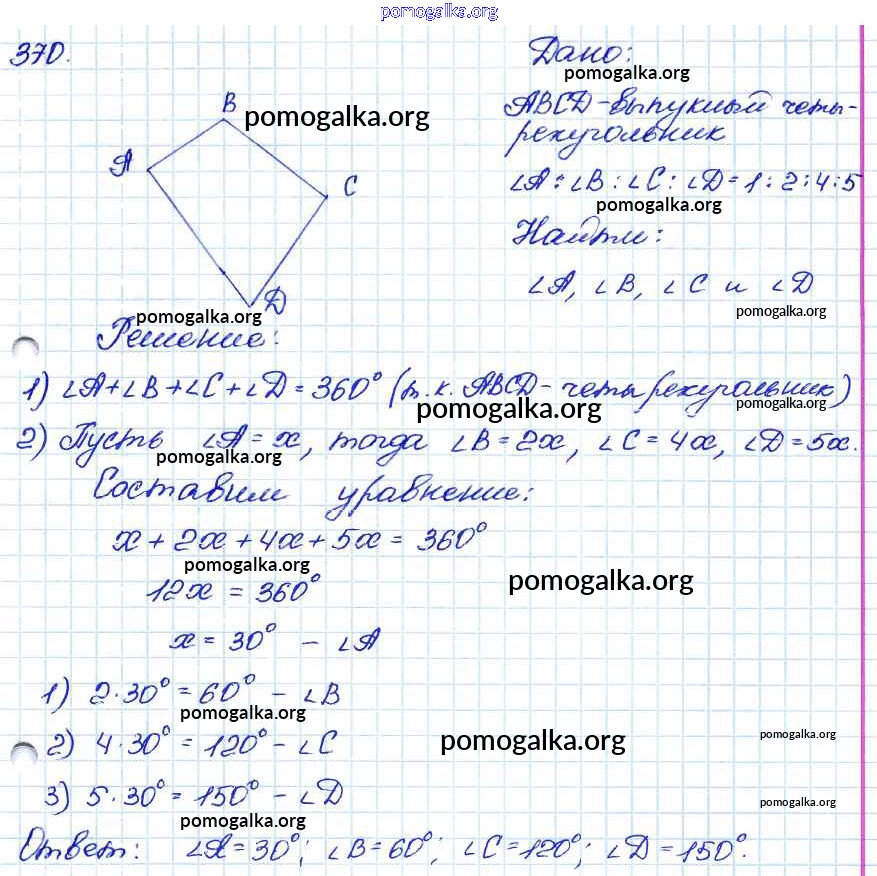 pomogalka.org
370.
Дано:
pomogalka.org
B
pomogalka.org
ABCD - выпуклый четы-
рехугольник
A
C
∠A : ∠B : ∠C : ∠D = 1 : 2 : 4 : 5
pomogalka.org
Найти:
∠A, ∠B, ∠C и ∠D
D
pomogalka.org
pomogalka.org
Решение:
1) ∠A + ∠B + ∠C + ∠D = 360° (т.к. ABCD - четырехугольник)
pomogalka.org
pomogalka.org
2) Пусть ∠A = x, тогда ∠B = 2x, ∠C = 4x, ∠D = 5x.
pomogalka.org
Составим уравнение:
x + 2x + 4x + 5x = 360°
pomogalka.org
pomogalka.org
12x = 360°
x = 30° - ∠A
1) 2·30° = 60° - ∠B
pomogalka.org
pomogalka.org
2) 4·30° = 120° - ∠C
pomogalka.org
3) 5·30° = 150° - ∠D
pomogalka.org
pomogalka.org
Ответ: ∠A = 30°; ∠B = 60°; ∠C = 120°; ∠D = 150°.